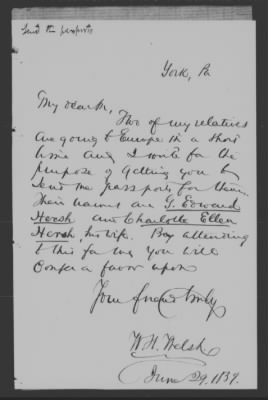 Send the passports
York, Pa
My dear Sir, Two of my relatives
are going to Europe in a short
time and I write for the
purpose of getting you to
send me passports for them.
Their names are G. Edward
Hersh and Charlotte Ellen
Hersh, his wife. By attending
to this for me you will
confer a favor upon
Your friend truly
W. H. Welsh
June 29.